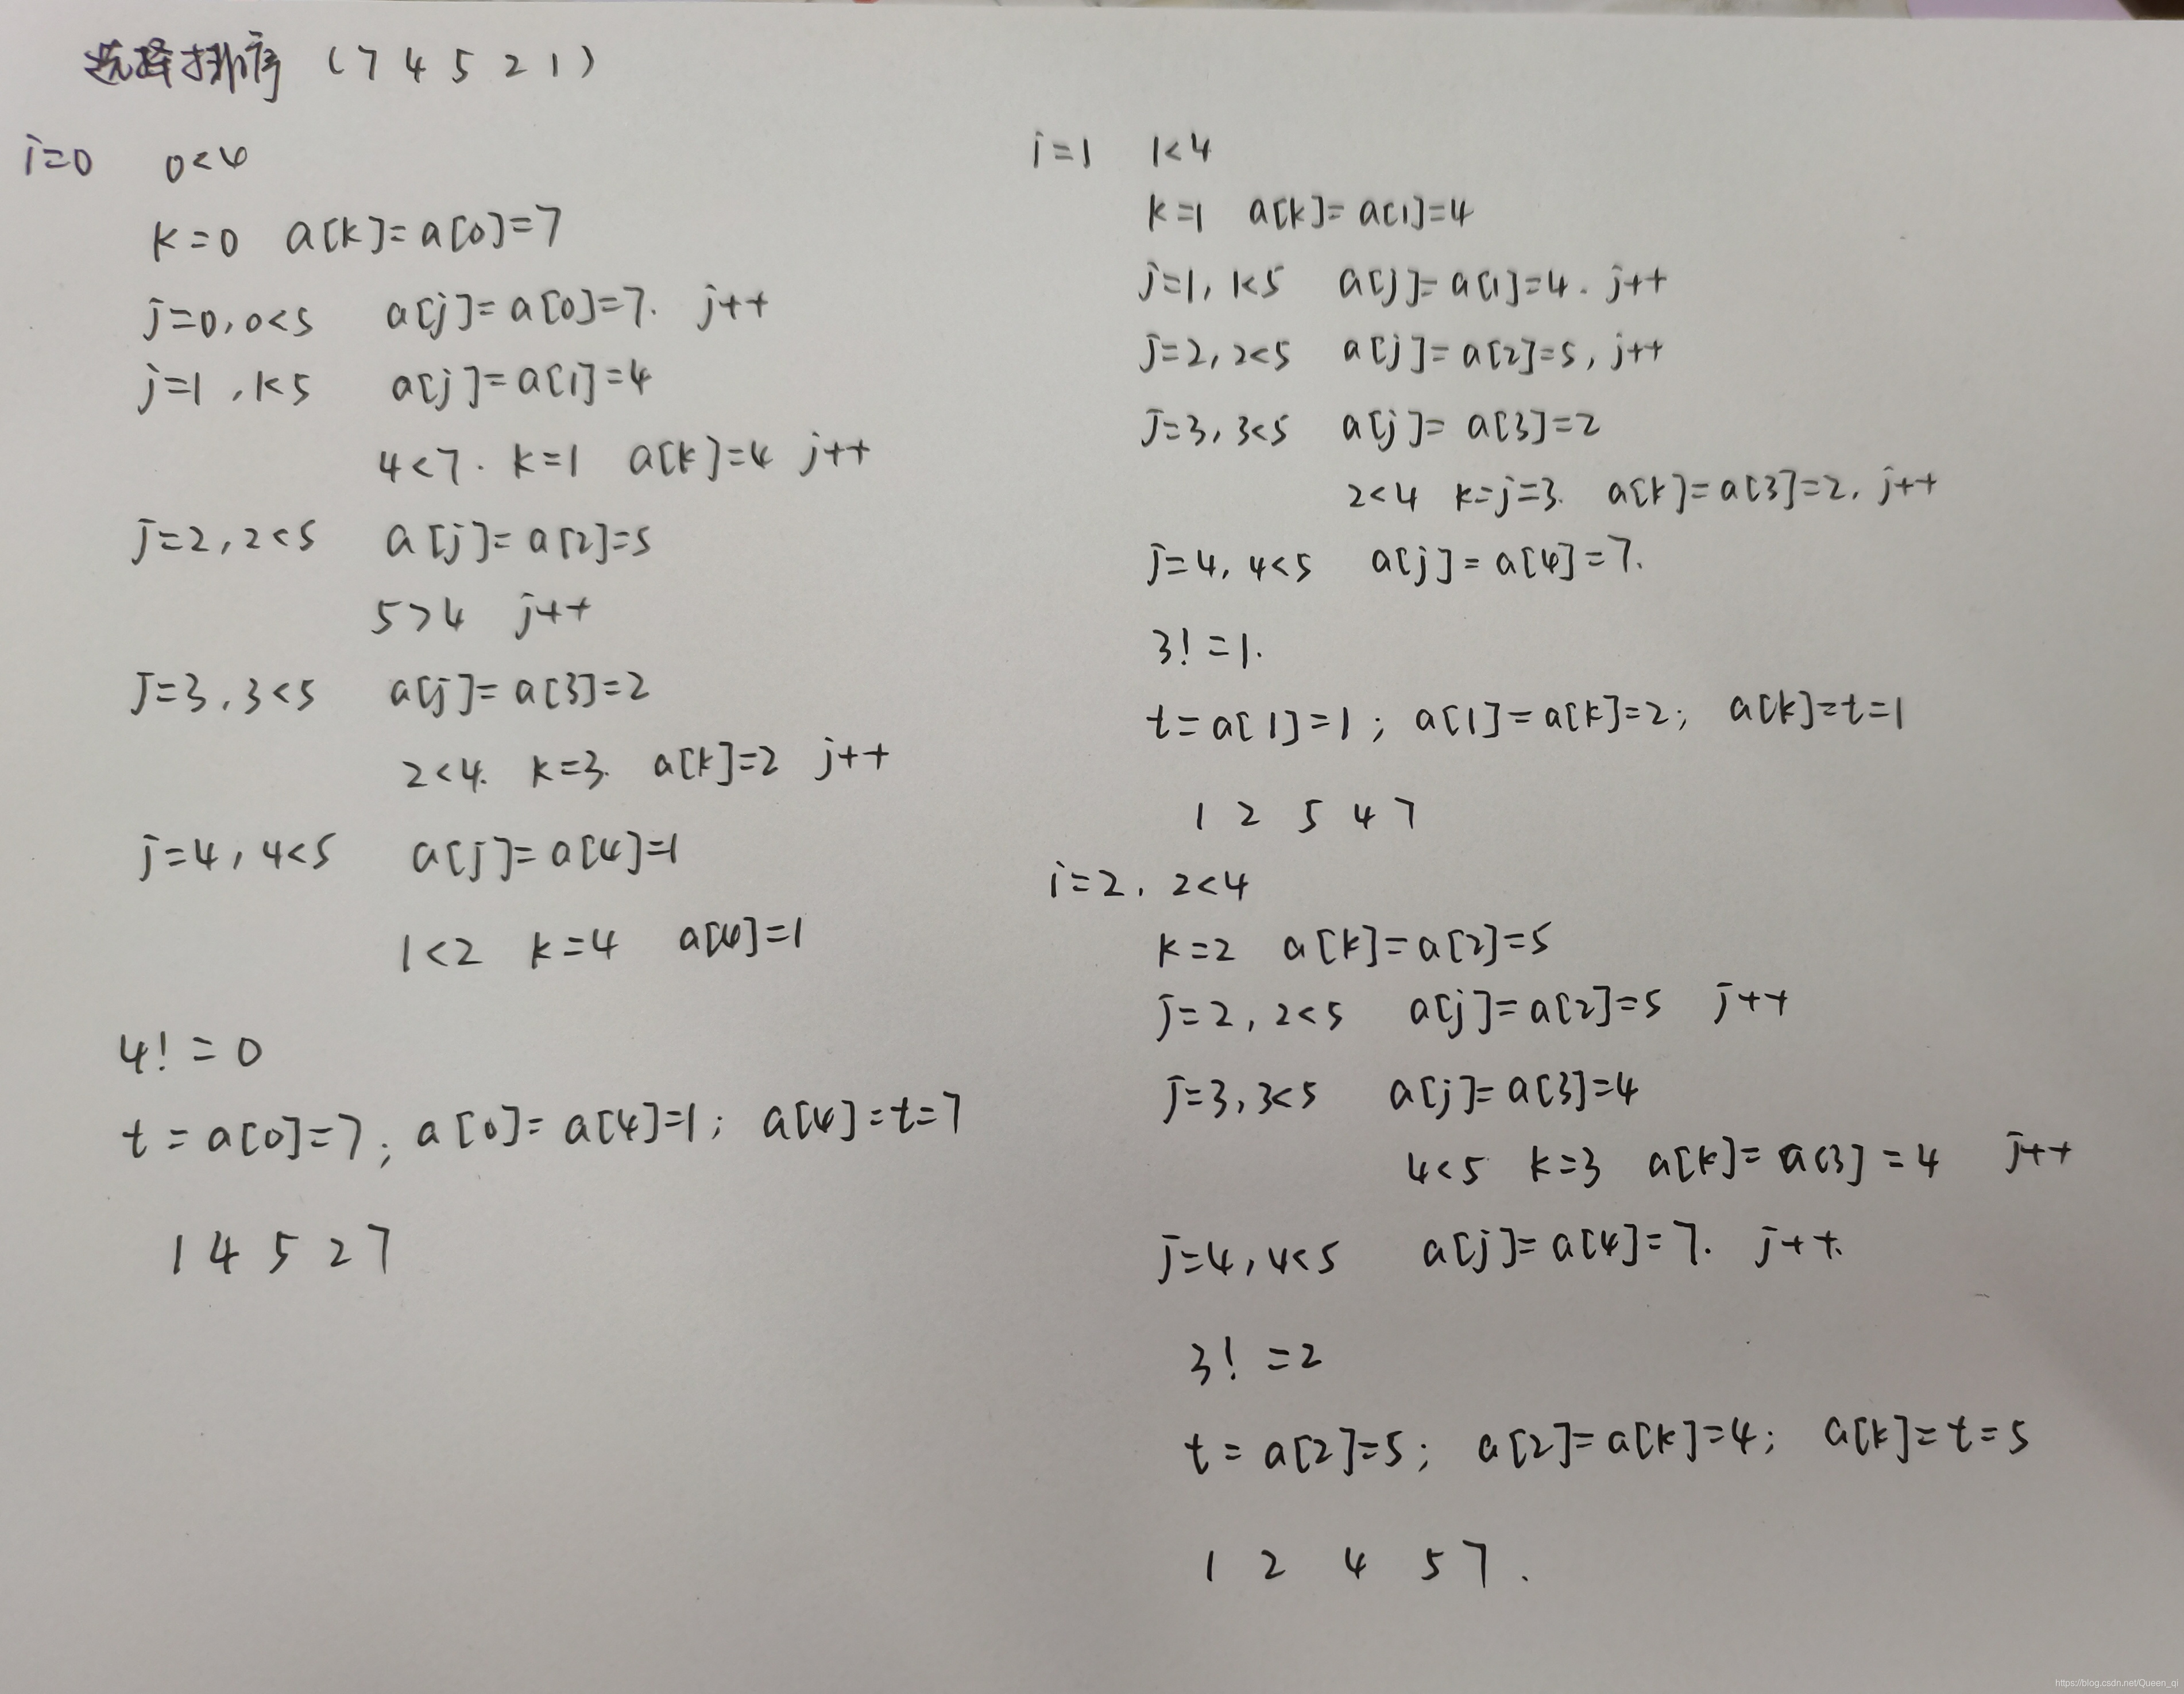 选择排序 (7 4 5 2 1)
i=0 0<4
k=0 a[k]=a[0]=7
j=0, 0<5 a[j]=a[0]=7. j++
j=1, 1<5 a[j]=a[1]=4
4<7. k=1 a[k]=4 j++
j=2, 2<5 a[j]=a[2]=5
5>4 j++
j=3, 3<5 a[j]=a[3]=2
2<4. k=3. a[k]=2 j++
j=4, 4<5 a[j]=a[4]=1
1<2 k=4 a[4]=1
4!=0
t=a[0]=7; a[0]=a[4]=1; a[4]=t=7
1 4 5 2 7
i=1 1<4
k=1 a[k]=a[1]=4
j=1, 1<5 a[j]=a[1]=4. j++
j=2, 2<5 a[j]=a[2]=5, j++
j=3, 3<5 a[j]=a[3]=2
2<4 k=j=3. a[k]=a[3]=2, j++
j=4, 4<5 a[j]=a[4]=7.
3!=1.
t=a[1]=1; a[1]=a[k]=2; a[k]=t=1
1 2 5 4 7
i=2, 2<4
k=2 a[k]=a[2]=5
j=2, 2<5 a[j]=a[2]=5 j++
j=3, 3<5 a[j]=a[3]=4
4<5 k=3 a[k]=a[3]=4 j++
j=4, 4<5 a[j]=a[4]=7. j++.
3!=2
t=a[2]=5; a[2]=a[k]=4; a[k]=t=5
1 2 4 5 7.
https://blog.csdn.net/Queen_q